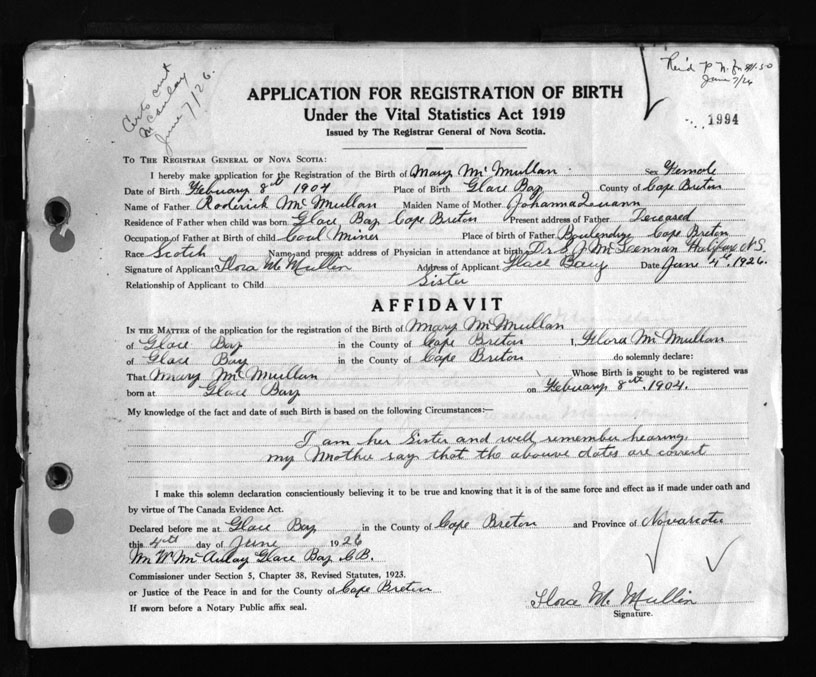 Rec'd P.N. for $1.50
June 7/26
Certs sent
McAulay
June 7/26.
APPLICATION FOR REGISTRATION OF BIRTH
Under the Vital Statistics Act 1919
Issued by The Registrar General of Nova Scotia.
1994
TO THE REGISTRAR GENERAL OF NOVA SCOTIA:
I hereby make application for the Registration of the Birth of Mary McMullan Sex Female
Date of Birth Febuary 8th 1904 Place of Birth Glace Bay County of Cape Breton
Name of Father Roderick McMullan Maiden Name of Mother Johanna
Residence of Father when child was born Glace Bay Cape Breton Present address of Father Deceased
Occupation of Father at Birth of child Coal Miner Place of birth of Father Cape Breton
Race Scotch Name and present address of Physician in attendance at birth Dr S. J. McLennan Halifax N.S.
Signature of Applicant Flora McMullin Address of Applicant Glace Bay Date June 4th, 1926.
Relationship of Applicant to Child Sister
AFFIDAVIT
IN THE MATTER of the application for the registration of the Birth of Mary McMullan
of Glace Bay in the County of Cape Breton I, Flora McMullan
of Glace Bay in the County of Cape Breton do solemnly declare:
That Mary McMullan Whose Birth is sought to be registered was
born at Glace Bay on Febuary 8th, 1904.
My knowledge of the fact and date of such Birth is based on the following Circumstances:—
I am her Sister and well remember hearing,
my Mother say that the abouve dates are correct
I make this solemn declaration conscientiously believing it to be true and knowing that it is of the same force and effect as if made under oath and
by virtue of The Canada Evidence Act.
Declared before me at Glace Bay in the County of Cape Breton and Province of Novascotia
this 4th day of June 1926
Wm W McAulay Glace Bay C.B.
Commissioner under Section 5, Chapter 38, Revised Statutes, 1923.
or Justice of the Peace in and for the County of Cape Breton
If sworn before a Notary Public affix seal.
Flora McMullin
Signature.